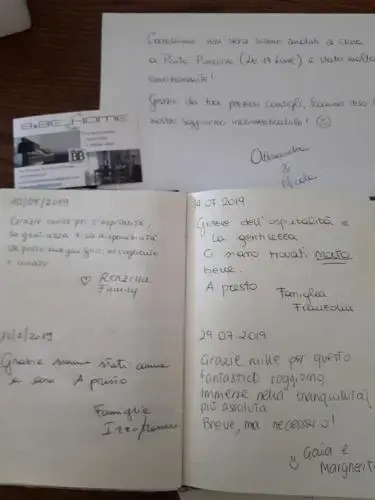 Carissimo ieri sera siamo andati a cena
a Punta (Le 17 Lune) è stato molto
emozionante!
Grazie dei tuoi preziosi consigli, hanno reso il
nostro soggiorno indimenticabile!
Alessandra
&
Nicola
B&B HOME
BB
2019
Grazie mille per l'ospitalità,
la gentilezza e la disponibilità
posto accogliente
e curato
Renzilla
Family
07 2019
Grazie dell'ospitalità e
la gentilezza
Ci siamo trovati molto
bene.
A presto
Famiglia
2019
Grazie siamo stati come
a casa A presto
Famiglia
29 07 2019
Grazie mille per questo
fantastico soggiorno
Immerse nella tranquillità
più assoluta
Breve, ma necessario!
Gaia e
Margherita